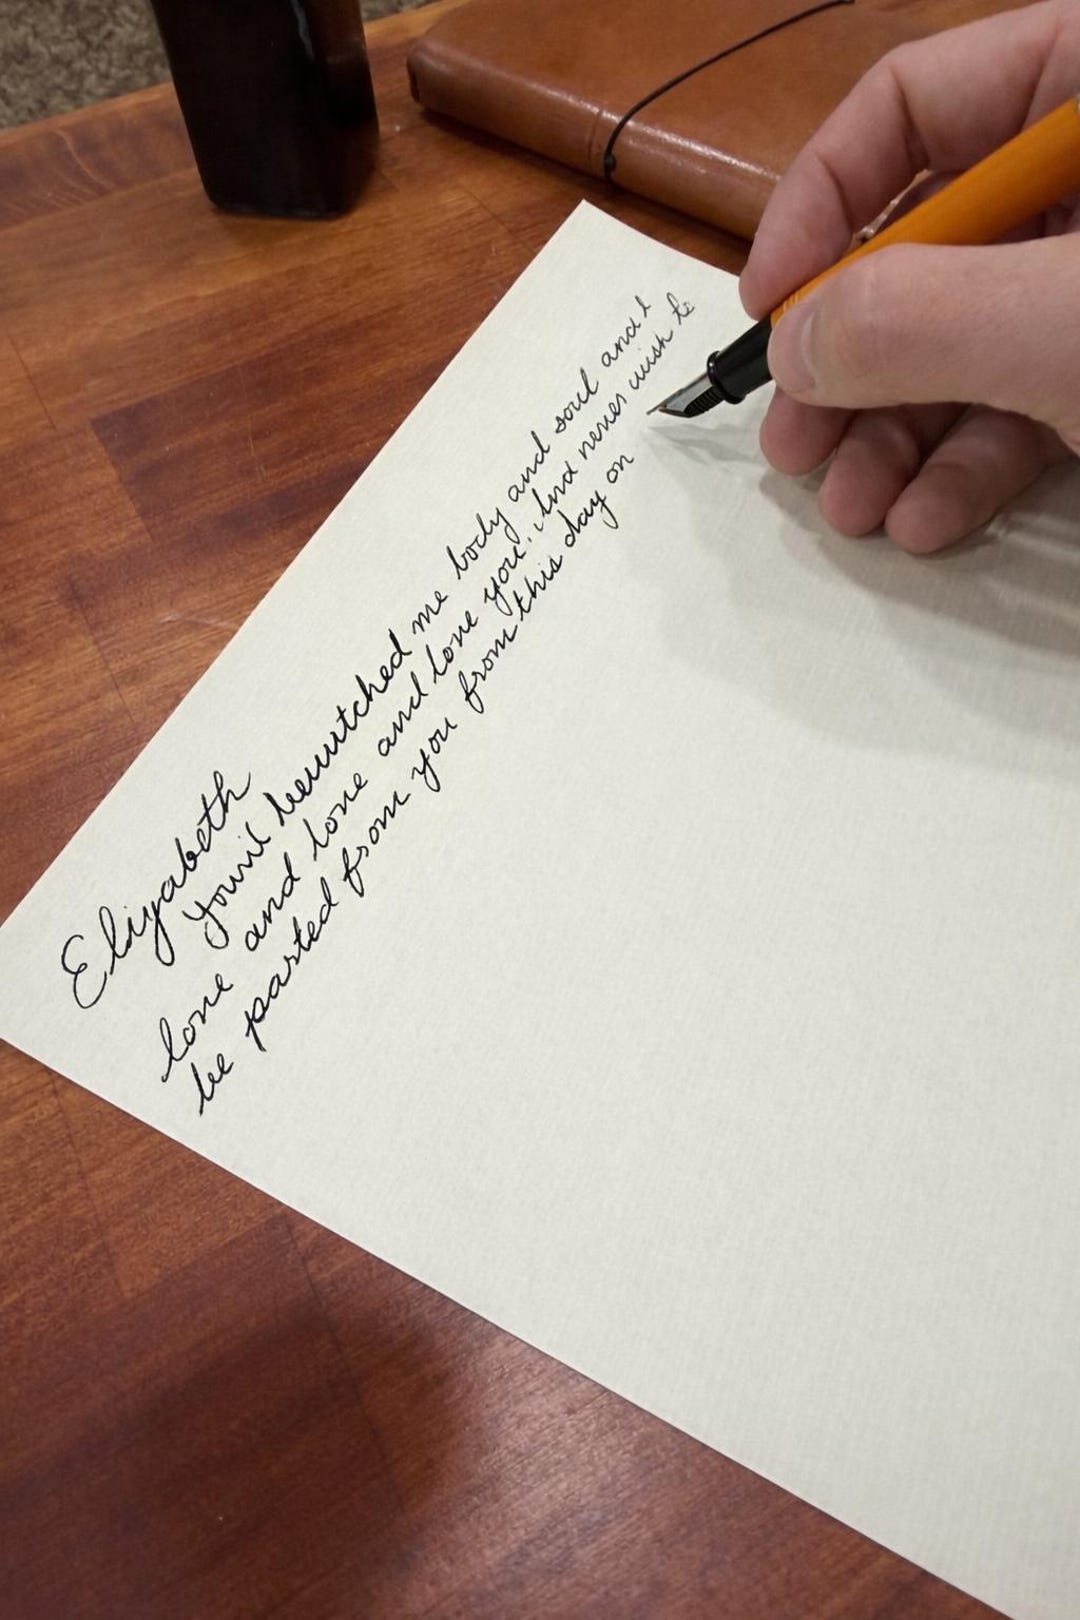 Elizabeth
you've bewitched me body and soul and I
love and love and love you. And never wish to
be parted from you from this day on